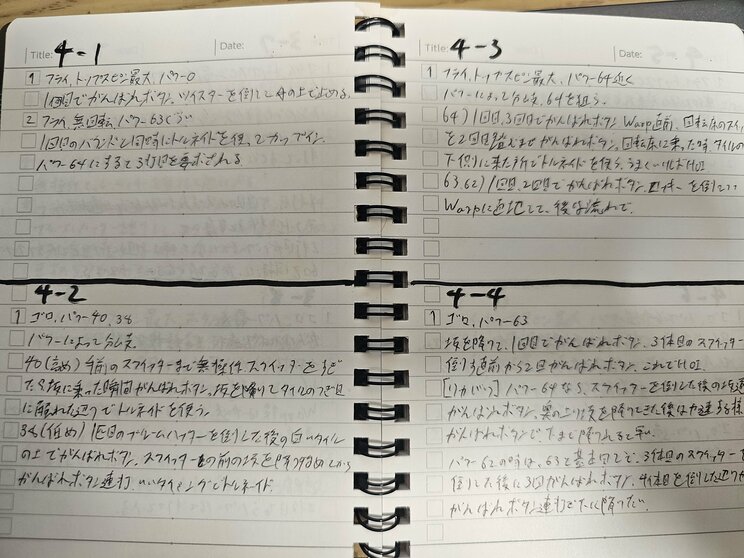 Title: 4-1 Date:
1 フライ、トップスピン最大、パワー0
1回目でがんばれボタン、ツイスターを倒して
2 フライ、無回転、パワー63ぐらい
1回目のバウンドと同時にトルネイドを使ってカップイン。
パワー64にすると3打目を要求される
4-2
1 ゴロ、パワー40、38
パワーによって分岐
40(高め) 手前のスクイッターまで無操作、スクイッターを
坂に乗った瞬間がんばれボタン。坂を降りてタイルのつなぎ目
に触れた辺りでトルネイドを使う。
38(低め) 1匹目のブルームハッターを倒した後の白いタイル
の上でがんばれボタン、スクイッターの前の坂を
がんばれボタン連打、いいタイミングでトルネイド
Title: 4-3 Date:
1 フライ、トップスピン最大、パワー64近く
パワーによって分岐、64を狙う。
64) 1回目、3回目でがんばれボタン Warp直前、回転床のスイ
を2回踏ませがんばれボタン。回転床に乗った時タイルの
下側に来た所でトルネイドを使う。うまくいけばHOI
63、62) 1回目、2回目でがんばれボタン、を倒しつつ
Warpに、後は流れで。
4-4
1 ゴロ、パワー63
坂を降りて、1回目でがんばれボタン、3体目のスクイッター
倒す直前から2回がんばれボタン、これでHOI
[リカバリ] パワー64なら、スクイッターを倒した後の
がんばれボタン、裏の上り坂を降りてきた後は加速する様
がんばれボタンで下まで降りれると早い
パワー62の時は、63と基本同じで、3体目のスクイッターを
倒した後に3回がんばれボタン、4体目を倒した辺りか
がんばれボタン連打で